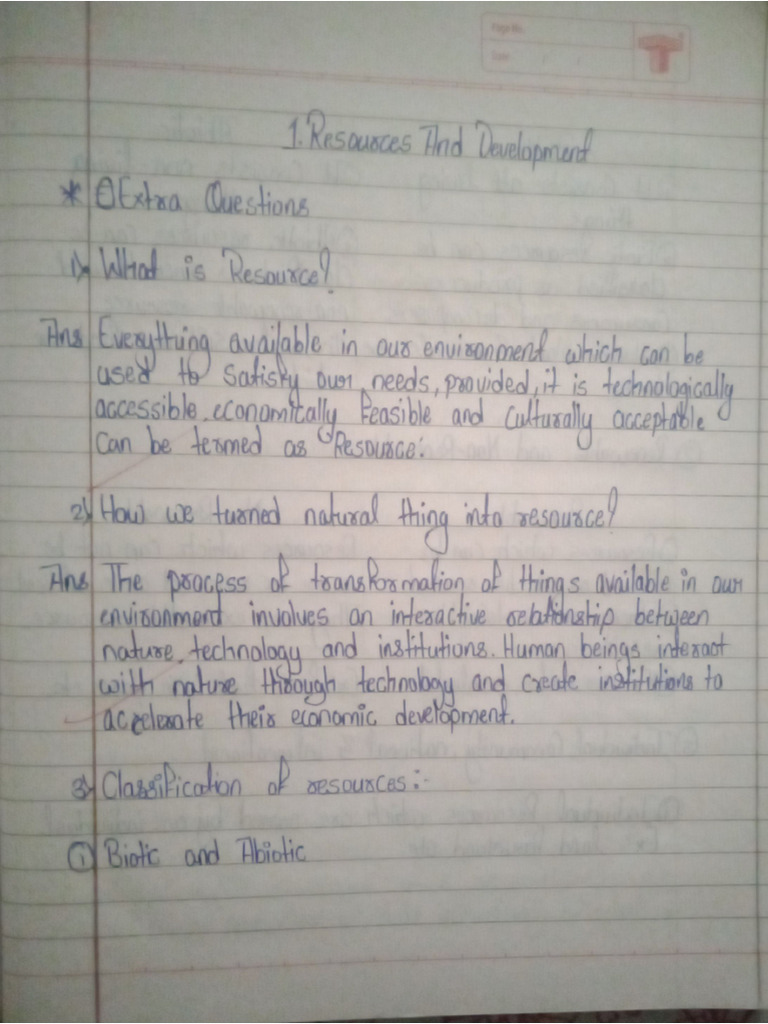 Page No.
Date
1. Resources And Development
* Extra Questions
1) What is Resource?
Ans Everything available in our environment which can be
used to satisfy our needs, provided, it is technologically
accessible, economically feasible and culturally acceptable
can be termed as 'Resource'.
2) How we turned natural thing into resource?
Ans The process of transformation of things available in our
environment involves an interactive relationship between
nature, technology and institutions. Human beings interact
with nature through technology and create institutions to
accelerate their economic development.
3) Classification of resources :-
① Biotic and Abiotic